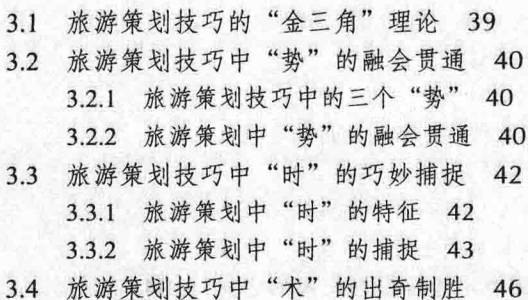 3.1 旅游策划技巧的“金三角”理论 39
3.2 旅游策划技巧中“势”的融会贯通 40
3.2.1 旅游策划技巧中的三个“势” 40
3.2.2 旅游策划中“势”的融会贯通 40
3.3 旅游策划技巧中“时”的巧妙捕捉 42
3.3.1 旅游策划中“时”的特征 42
3.3.2 旅游策划中“时”的捕捉 43
3.4 旅游策划技巧中“术”的出奇制胜 46